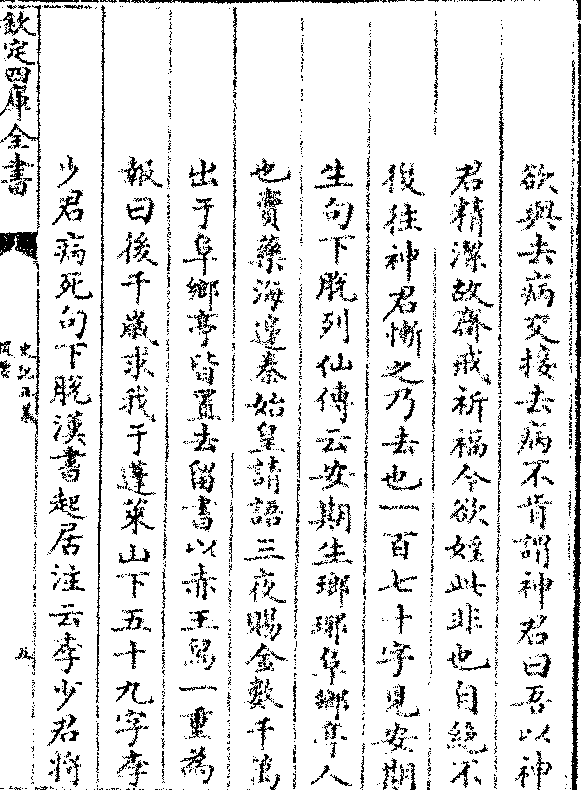 欲與去病交接去病不肯謂神君曰吾以神
君精潔故齋戒祈福今欲婬此非也自絶不
復往神君慚之乃去也一百七十字見安期
生句下脱列仙傳云安期生瑯琊阜鄉亭人
也賣藥海邉秦始皇請語三夜賜金數千萬
出于阜鄉亭皆置去留書以赤玉舄一重為
報曰後千歲求我于蓬萊山下五十九字李
少君病死句下脱漢書起居注云李少君將
欽定四庫全書
史記正義
五